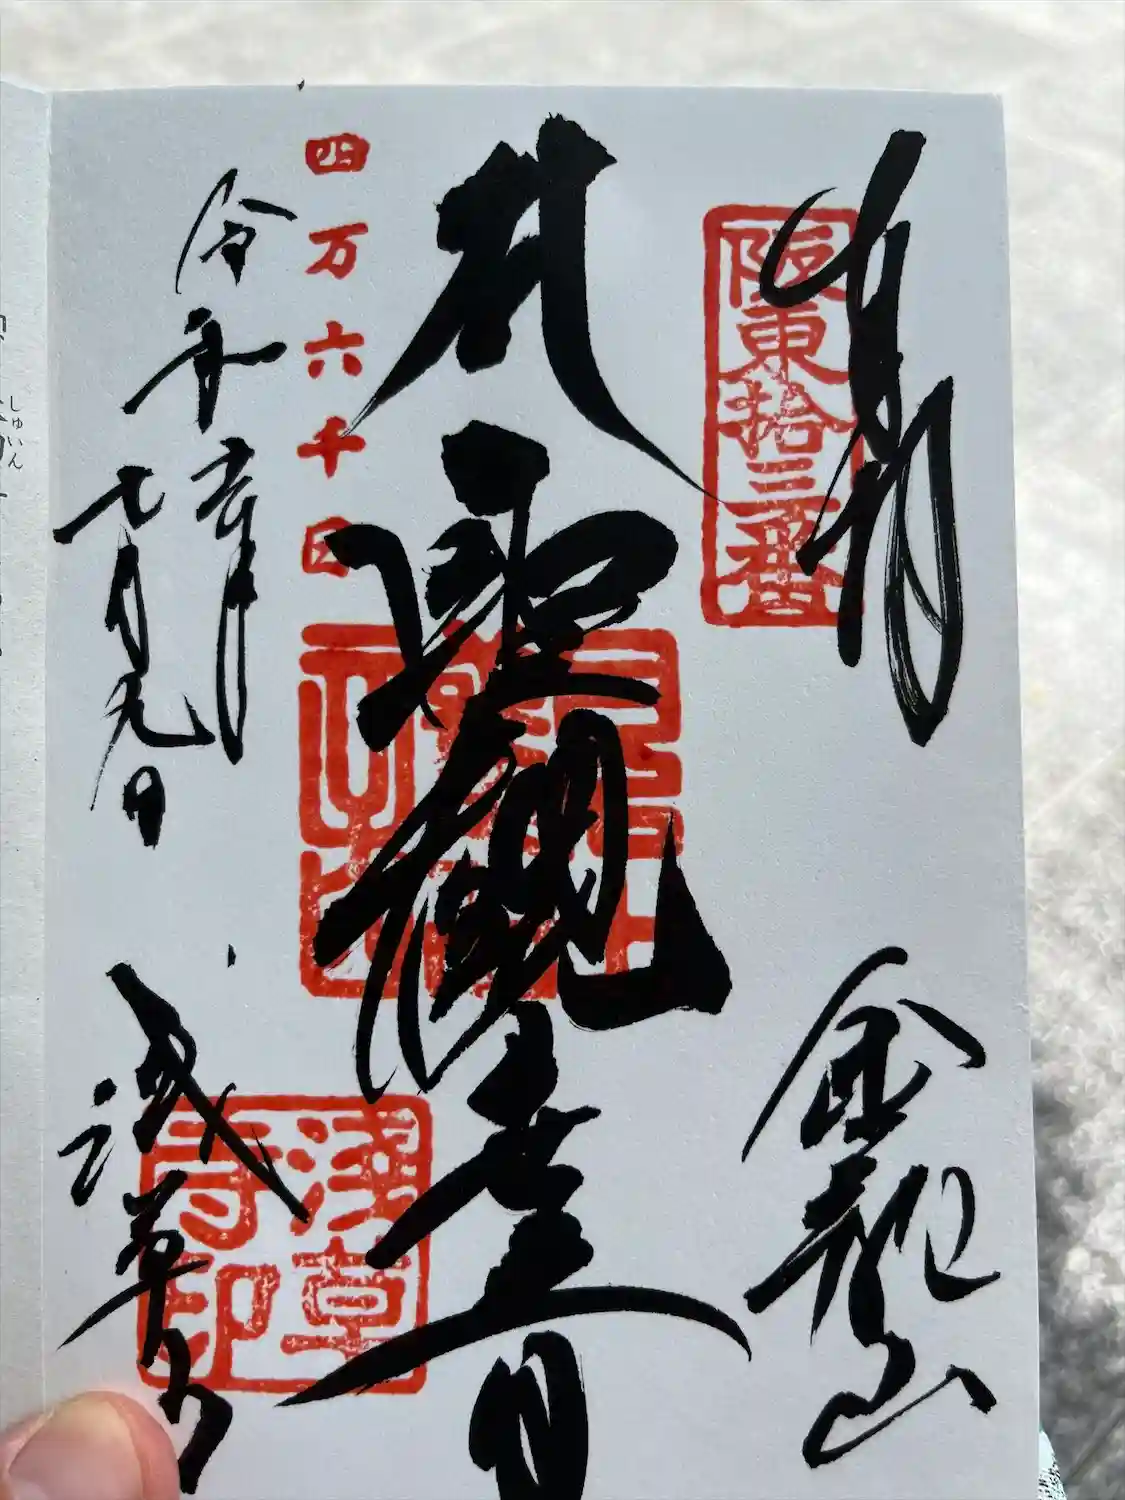 阪東拾三番
金龍山
聖観音
四万六千日
令和六年
七月九日
浅草寺
浅草寺印
しゅいん